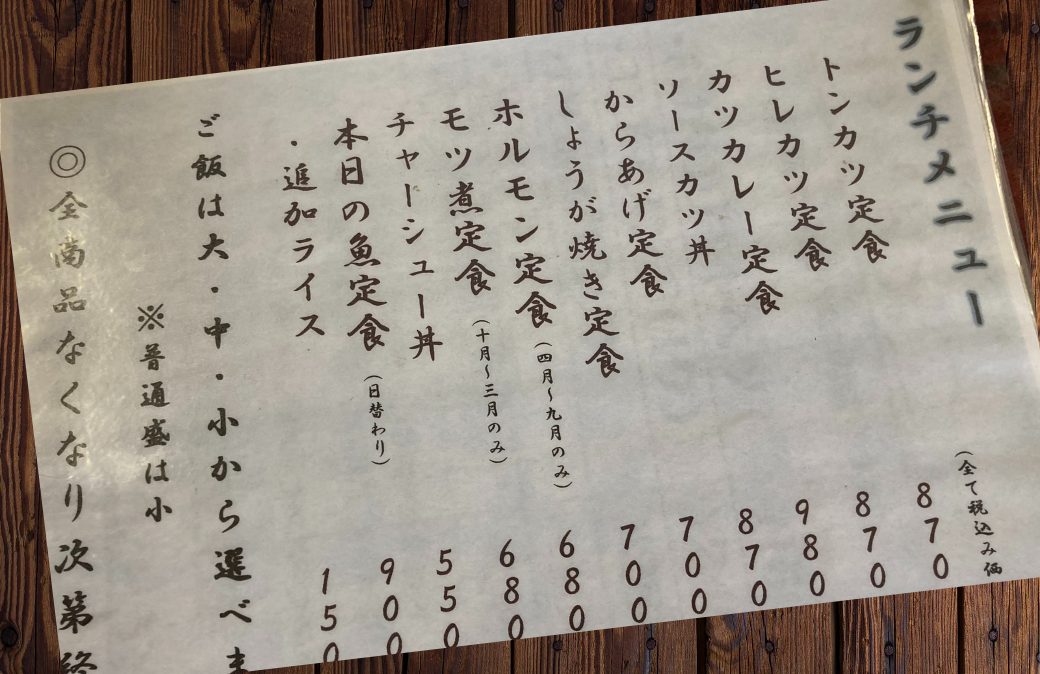 ランチメニュー
(全て税込み価
トンカツ定食 870
ヒレカツ定食 870
カツカレー定食 980
ソースカツ丼 870
からあげ定食 700
しょうが焼き定食 700
ホルモン定食(四月〜九月のみ) 680
モツ煮定食(十月〜三月のみ) 680
チャーシュー丼 550
本日の魚定食(日替わり) 900
・追加ライス 150
ご飯は大・中・小から選べま
※普通盛は小
◎全商品なくなり次第終